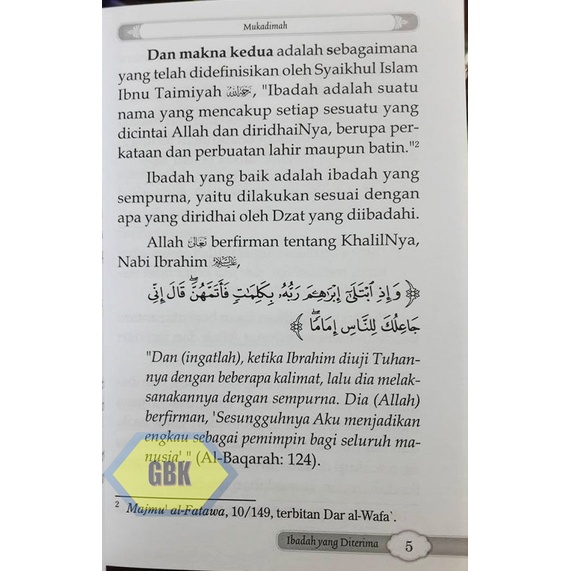 Mukadimah
Dan makna kedua adalah sebagaimana
yang telah didefinisikan oleh Syaikhul Islam
Ibnu Taimiyah رحمه الله, "Ibadah adalah suatu
nama yang mencakup setiap sesuatu yang
dicintai Allah dan diridhaiNya, berupa per-
kataan dan perbuatan lahir maupun batin."2
Ibadah yang baik adalah ibadah yang
sempurna, yaitu dilakukan sesuai dengan
apa yang diridhai oleh Dzat yang diibadahi.
Allah تعالى berfirman tentang KhalilNya,
Nabi Ibrahim عليه السلام,
﴿ وَإِذِ ٱبْتَلَىٰٓ إِبْرَٰهِـۧمَ رَبُّهُۥ بِكَلِمَٰتٍ فَأَتَمَّهُنَّ ۖ قَالَ إِنِّى
جَاعِلُكَ لِلنَّاسِ إِمَامًا ۖ ﴾
"Dan (ingatlah), ketika Ibrahim diuji Tuhan-
nya dengan beberapa kalimat, lalu dia melak-
sanakannya dengan sempurna. Dia (Allah)
berfirman, 'Sesungguhnya Aku menjadikan
engkau sebagai pemimpin bagi seluruh ma-
nusia' " (Al-Baqarah: 124).
GBK
2 Majmu' al-Fatawa, 10/149, terbitan Dar al-Wafa`.
Ibadah yang Diterima 5